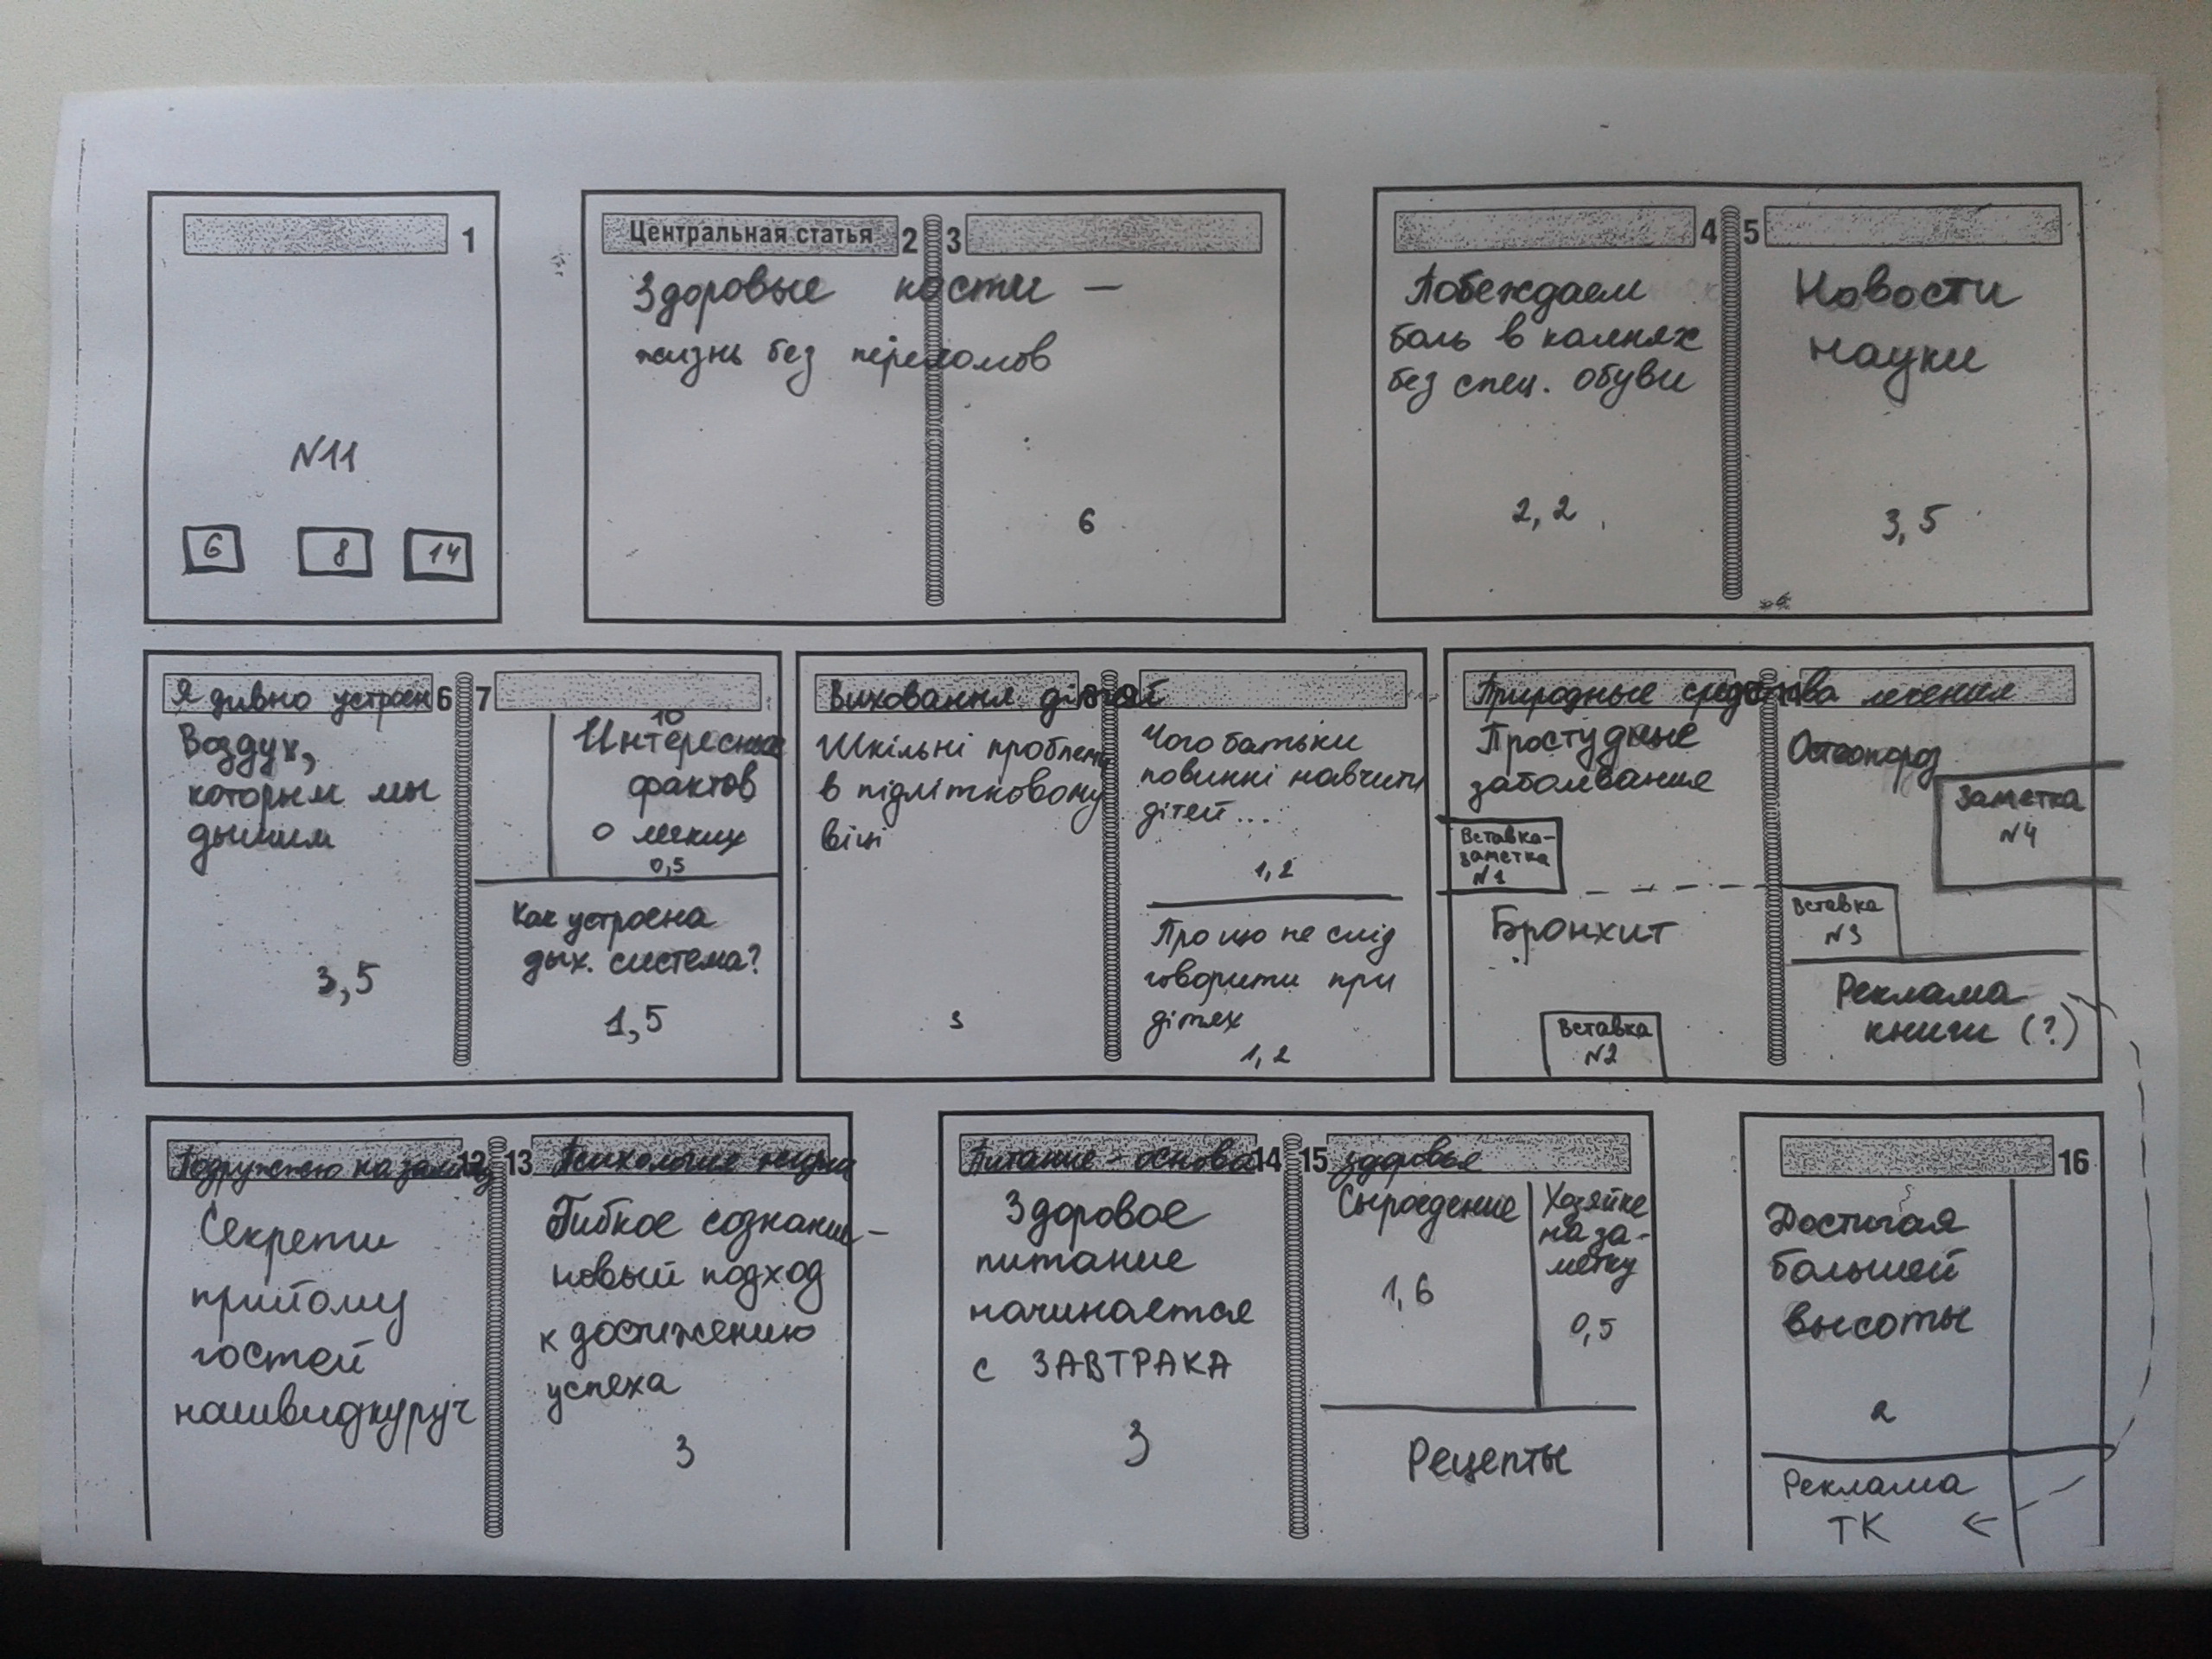 1
N11
6 8 14
Центральная статья 2 3
Здоровые кости —
жизнь без переломов
6
4 5
Побеждаем
боль в коленях
без спец. обуви
2,2
Новости
науки
3,5
Я дивно устроен 6 7
Воздух,
которым мы
дышим
3,5
10
Интересных
фактов
о легких
0,5
Как устроена
дых. система?
1,5
Виховання дітей
Шкільні проблеми
в підлітковому
віці
3
Чого батьки
повинні навчити
дітей...
1,2
Про що не слід
говорити при
дітях
1,2
Природные средства лечения
Простудные
заболевания
Вставка-
заметка
N1
Бронхит
Вставка
N2
Остеопороз
Заметка
N4
Вставка
N3
Реклама
книги (?)
Подружжю на замітку 12 13 Психология жизни
Секрети
прийому
гостей
нашвидкуруч
Гибкое сознание —
новый подход
к достижению
успеха
3
Питание - основа 14 15 здоровья
Здоровое
питание
начинается
с ЗАВТРАКА
3
Сыроедение
1,6
Хозяйке
на за-
метку
0,5
Рецепты
16
Достигая
большей
высоты
2
Реклама
ТК ←